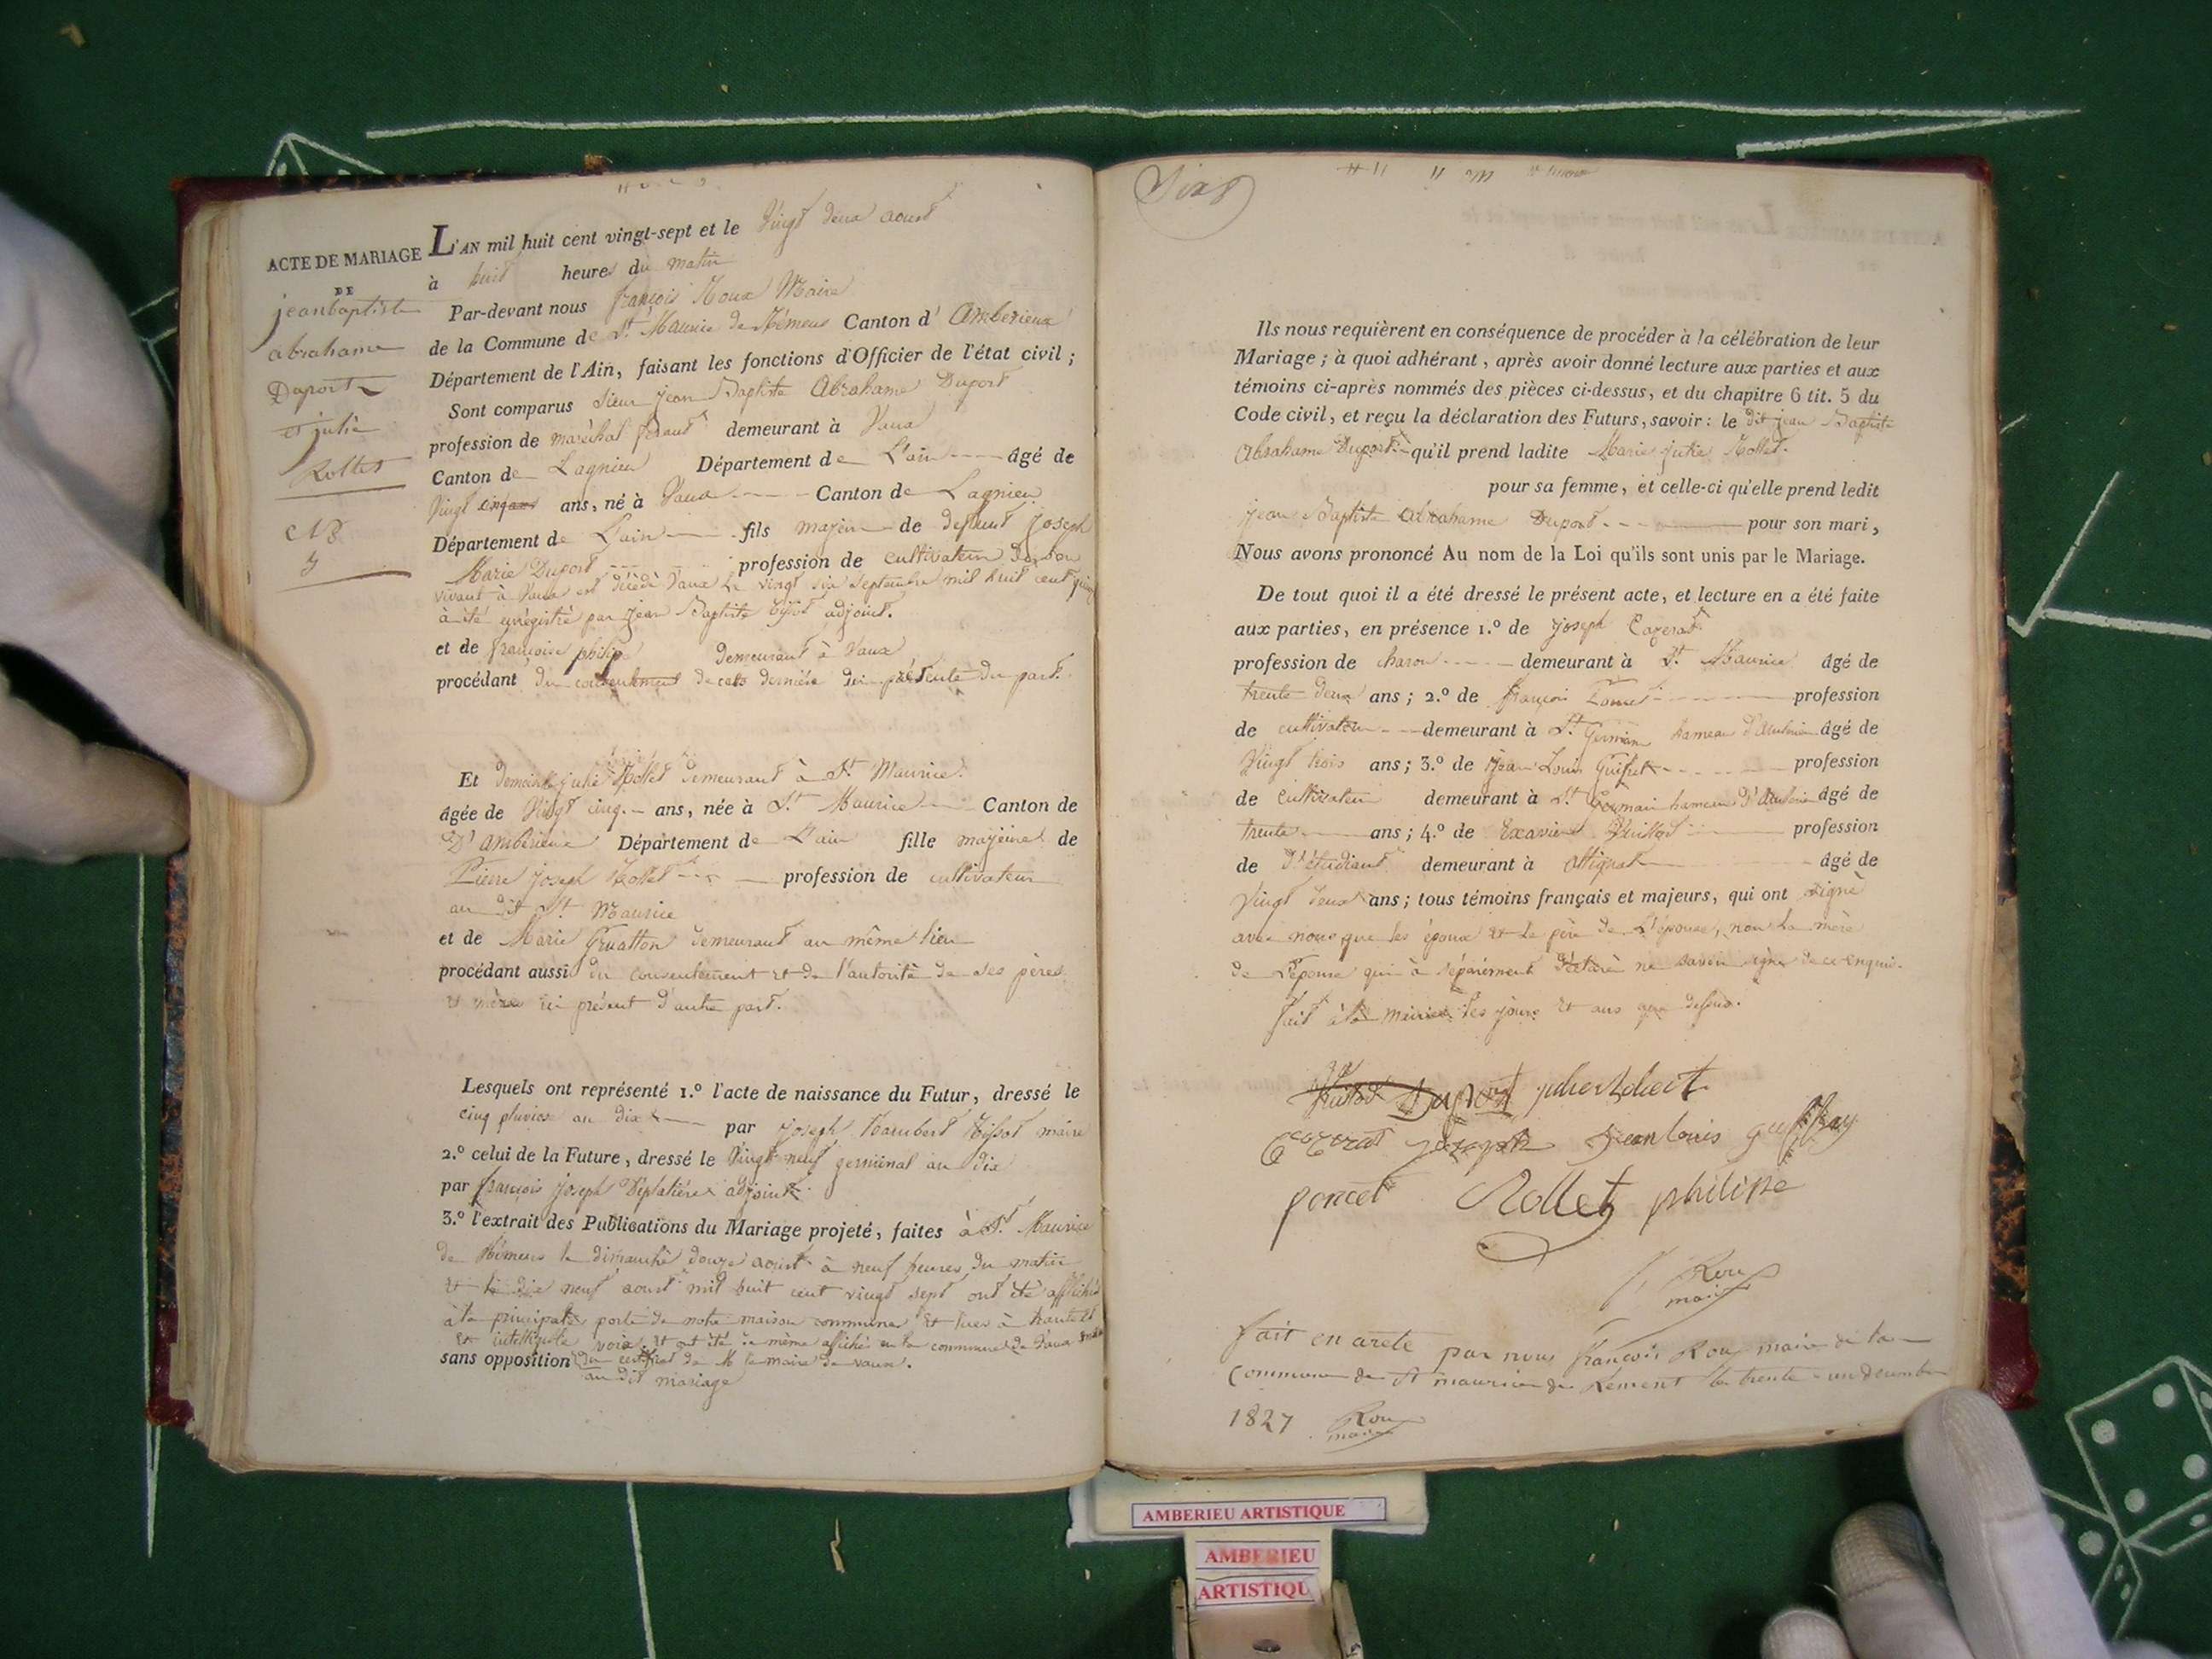 ACTE DE MARIAGE
DE
jean baptiste
abrahame
Duport
et julie
Rollet
N
L'AN mil huit cent vingt-sept et le Vingt deux aoust
à huit heures du matin
Par-devant nous françois Roux Maire
de la Commune de St Maurice de Rémens Canton d' Amberieux
Département de l'Ain, faisant les fonctions d'Officier de l'état civil ;
Sont comparus Sieur Jean Baptiste Abrahame Duport
profession de maréchal ferant demeurant à Vaux
Canton de Lagnieu Département de L'ain âgé de
Vingt cinq ans, né à Vaux Canton de Lagnieu
Département de L'ain fils majeur de defunt Joseph
Marie Duport profession de cultivateur de son
vivant à Vaux est décédé Vaux le vingt six septembre mil huit cent
à été enrégistré par Jean Baptiste Tissot adjoint.
et de françoise philipe demeurant à Vaux
procédant du consentement de cette dernière ici présente du part.
Et demoiselle julie Rollet demeurant à St Maurice
âgée de Vingt cinq ans, née à St Maurice Canton de
D'amberieux Département de L'ain fille majeure de
Pierre Joseph Rollet profession de cultivateur
au dit St Maurice
et de Marie Gruatton demeurant au même lieu
procédant aussi du consentement et de l'autorité de ses pères
et mères ici présent d'autre part.
Lesquels ont représenté 1.º l'acte de naissance du Futur, dressé le
cinq pluviose an dix par Joseph Tissot maire
2.º celui de la Future, dressé le Vingt neuf germinal an dix
par françois Joseph Déplatière adjoint
3.º l'extrait des Publications du Mariage projeté, faites à St Maurice
de Rémens le dimanche douze aoust à neuf heures du matin
et le dix neuf aoust mil huit cent vingt sept ont été affichés
à la principale porte de notre maison commune et lues à haute et
et intelligible voix, et ont été de même affichés en la commune de Vaux
sans opposition du certificat de M le maire de vaux.
au dit mariage
Ils nous requièrent en conséquence de procéder à la célébration de leur
Mariage ; à quoi adhérant , après avoir donné lecture aux parties et aux
témoins ci-après nommés des pièces ci-dessus, et du chapitre 6 tit. 5 du
Code civil, et reçu la déclaration des Futurs, savoir : le dit jean Baptiste
Abrahame Duport qu'il prend ladite Marie julie Rollet
pour sa femme, et celle-ci qu'elle prend ledit
jean Baptiste Abrahame Duport pour son mari ,
Nous avons prononcé Au nom de la Loi qu'ils sont unis par le Mariage.
De tout quoi il a été dressé le présent acte, et lecture en a été faite
aux parties, en présence 1.º de Joseph Cozerat
profession de charon demeurant à St Maurice âgé de
trente deux ans ; 2.º de françois profession
de cultivateur demeurant à St Germain hameau d'ambérieu âgé de
Vingt trois ans ; 3.º de Jean Louis Guifret profession
de cultivateur demeurant à St Germain hameau d'ambérieu âgé de
trente ans ; 4.º de Exavier profession
de d'étudiant demeurant à Attignat âgé de
Vingt deux ans ; tous témoins français et majeurs, qui ont signé
avec nous que les époux et le père de L'épouse, non la mère
de L'épouse qui à séparément déclaré ne savoir signer de ce enquis.
fait à la mairie les jours et ans que dessus.
Duport
Cozerat joseph Jean louis guiffray
poncet Rollet philippe
Roux
maire
fait en arete par nous françois Roux maire de la
Commune de St maurice de Rement le trente un decembre
1827 Roux
maire
AMBERIEU ARTISTIQUE
AMBERIEU
ARTISTIQU